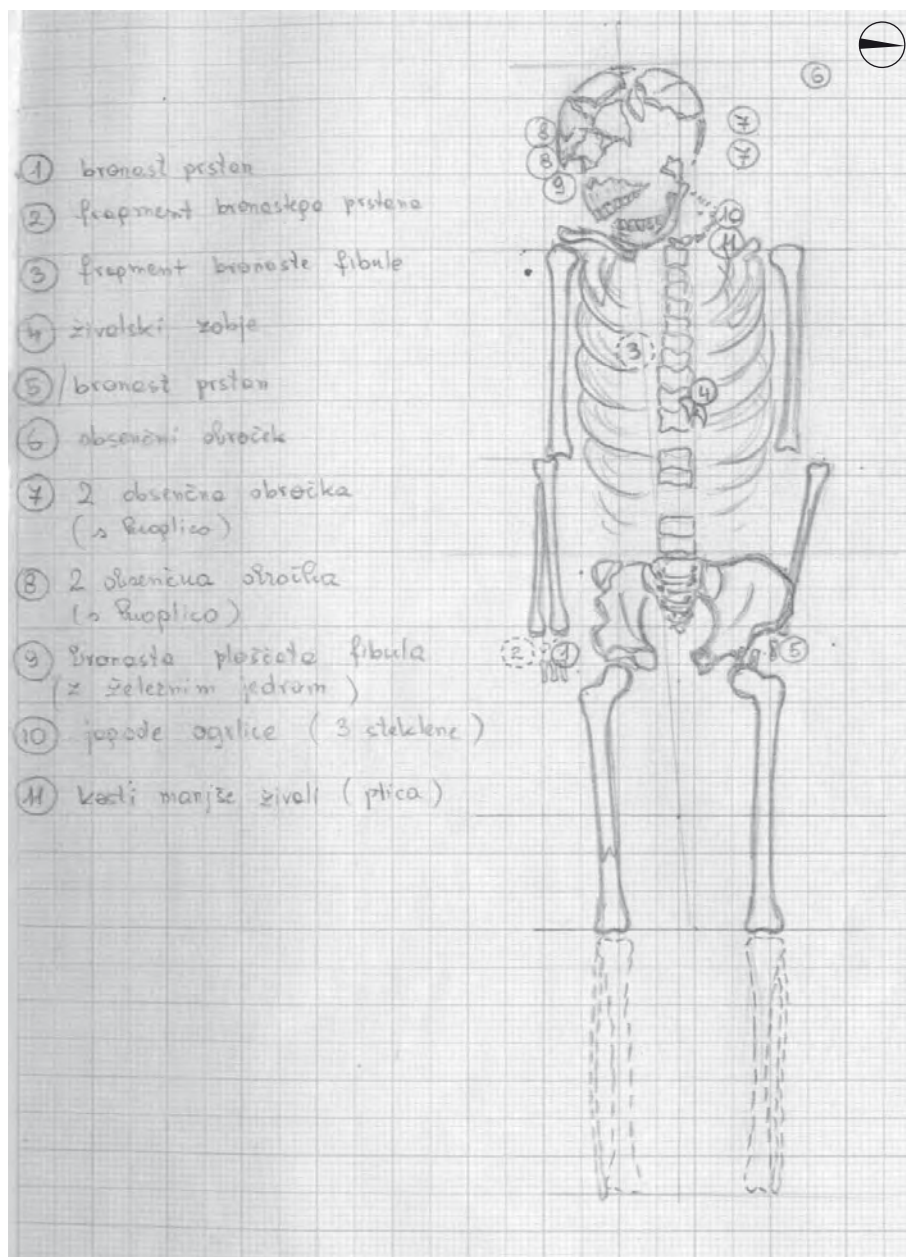 1 bronast prstan
2 fragment bronastega prstana
3 fragment bronaste fibule
4 živalski zobje
5 bronast prstan
6 obsenčni obroček
7 2 obsenčna obročka
(s kaplico)
8 2 obsenčna obročka
(s kaplico)
9 bronasta ploščata fibula
(z železnim jedrom)
10 jagode ogrlice (3 steklene)
11 kosti manjše živali (ptica)
6
7
7
8
8
9
10
11
3
4
2
1
5